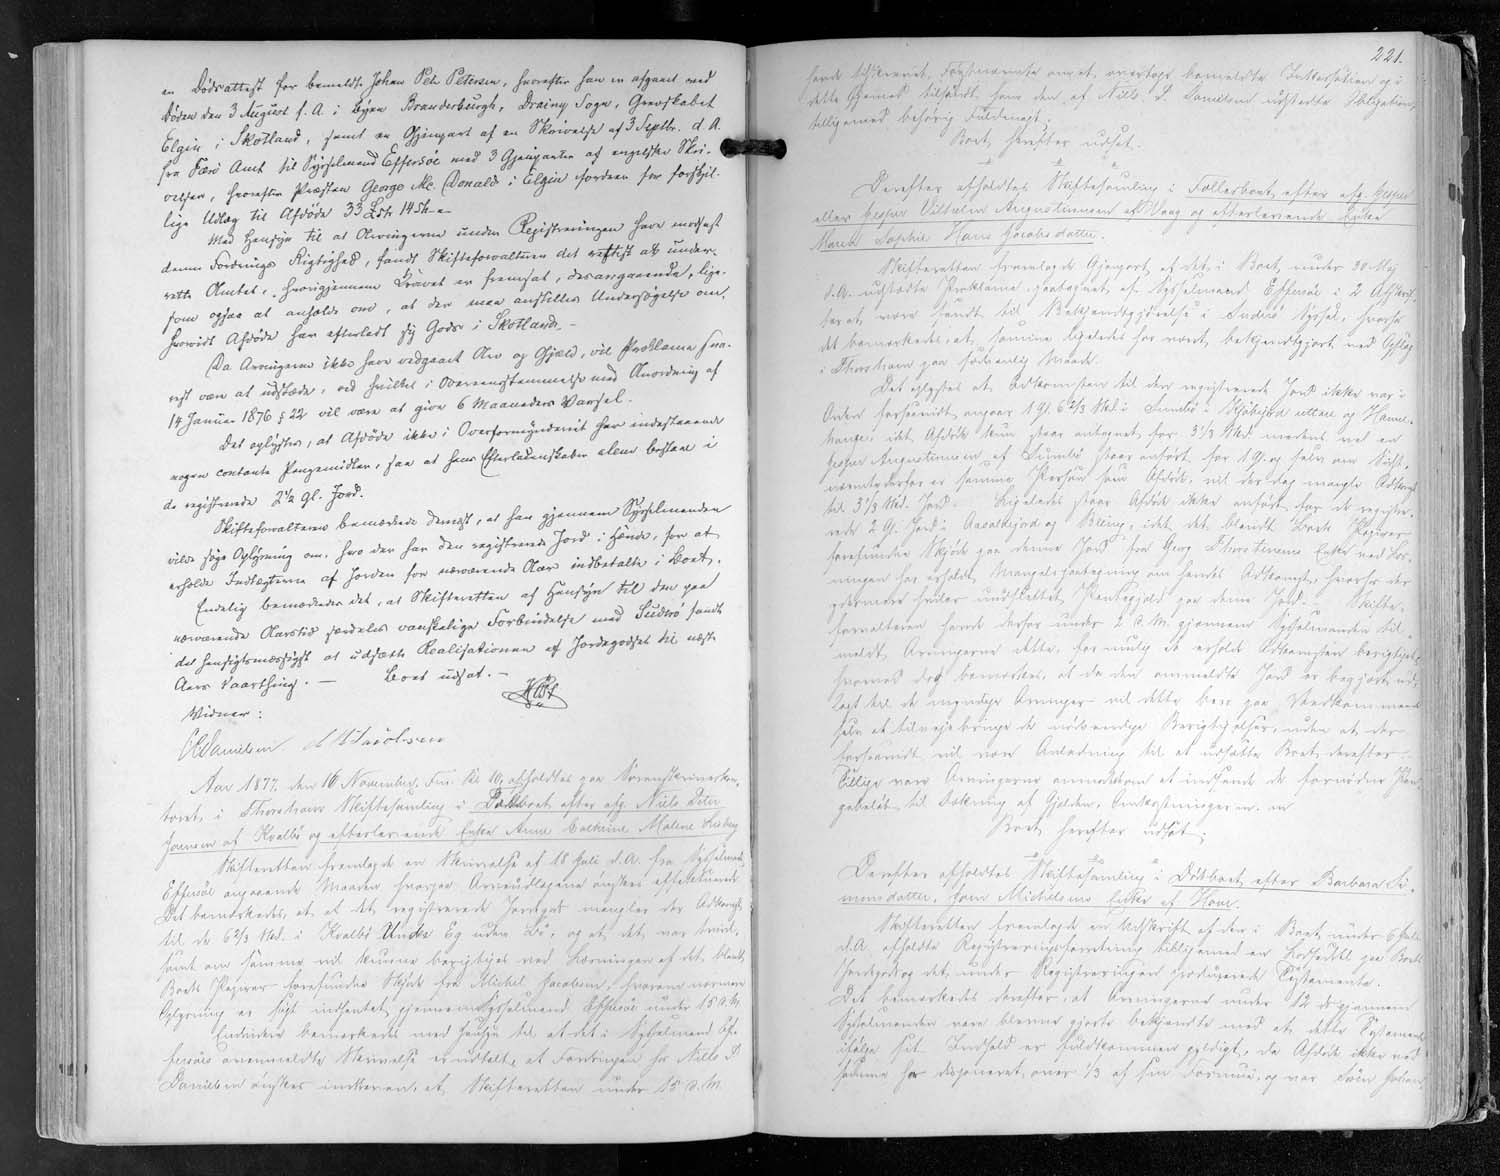 en Dødsattest for bemeldte Johan Petr Petersen, hvorefter han er afgaaet ved
Døden den 3 August f. A. i Byen Branderburgh, Drainy Sogn, Grevskabet
Elgin i Skotland, samt en Gjenpart af en Skrivelse af 3 Septbr. d. A.
fra Færø Amt til Sysselmand Effersøe med 3 Gjenparter af engelske Skri-
velser, hvorefter Præsten George Mc. Donald i Elgin fordrer for forskjel-
lige Udlæg til Afdøde 33 Lst. 14 sh.
Med Hensyn til at Arvingerne under Registreringen have modsagt
denne Fordrings Rigtighed, fandt Skifteforvalteren det rettest at under-
rette Amtet, hvorigjennem Kravet er fremsat, desangaaende, lige-
som ogsaa at anholde om, at der maa anstilles Undersøgelse om,
hvorvidt Afdøde har efterladt sig Gods i Skotland. -
Da Arvingerne ikke have vedgaaet Arv og Gjæld, vil Proklama sna-
rest være at udstæde, ved hvilket i Overeensstemmelse med Anordning af
14 Januar 1876 § 22 vil være at give 6 Maaneders Varsel.
Det oplystes, at Afdøde ikke i Overformynderiet har indestaaende
nogen contante Pengemidler, saa at hans Efterladenskaber alene bestaae i
de registrerede 2½ Gl. Jord.
Skifteforvalteren bemærkede dernæst, at han gjennem Sysselmanden
vilde søge Oplysning om, hvo der har den registrerede Jord i Hænde, for at
erholde Indtægterne af Jorden for nærværende Aar indbetalte i Boet.
Endelig bemærkedes det, at Skifteretten af Hensyn til den paa
nærværende Aarstid særdeles vanskelige Forbindelse med Suderø fandt
det hensigtsmæssigst at udsætte Realisationen af Jordegodset til næste
Aars Vaarthing. - Boet udsat. -
Vidner:
Danielsen Jacobsen
Aar 1877, den 16 November, Fm. Kl. 10, afholdtes paa Sorenskriverkon-
toret i Thorshavn Skiftesamling i Fællesboet efter afg. Niels Peter
Joensen af Kvalbø og efterlevende Enke Anne Cathrine Malene
Skifteretten fremlagde en Skrivelse af 18 Juli d.A. fra Sysselmand
Effersøe angaaende Maaden, hvorpaa Arveudlægene ønskes effectuerede
Det bemærkedes, at af det registrerede Jordegods mangler der Adkomst
til de 6 2/3 Skd. i Kvalbø Under Eg uden Bø, og at det var tvivl-
somt om samme vil kunne berigtiges ved Læsningen af det blandt
Boets Papirer forefundne Skjøde fra Michel Jacobsen, hvorom nærmere
Oplysning er søgt indhentet gjennem Sysselmand Effersøe under 15 d.M.
Endvidere bemærkedes med Hensyn til at det i Sysselmand Ef-
fersøes ovenmeldte Skrivelse er udtalt, at Fordringen hos Niels P
Danielsen ønskes inddreven, at Skifteretten under 15 d. M.
221.
havde tilskrevet Foged
dette Øjemed tilsendt ham den af Niels P Danielsen udstedte Obligation,
tilligemed behørig Fuldmagt.
Boet herefter udsat.
Derefter afholdtes Skiftesamling i Fællesboet efter afg. Jesper
eller Jesper Vilhelm Augustinussen af Vaag og efterlevende Enke
Maren Sophie Hans Jacobsdatter.
Skifteretten fremlagde Gjenpart af det i Boet under 30 Maj
d.A. udstædte Proklama, paategnet af Sysselmand Effersøe i 2 Afskrif-
ter at være sendt til Bekjendtgjørelse i Suderø Syssel, hvorhos
det bemærkedes, at samme ligeledes har været bekjendtgjort ved Opslag
i Thorshavn paa sædvanlig Maade.
Det oplystes at Adkomsten til den registrerede Jord ikke var i
Orden forsaavidt angaar 1 Gl. 6 2/3 Skd. i Sumbø
idet Afdøde kun staar antegnet for 3 1/3 Skd. medens vel en
Jesper Augustinussen af Sumbø staar anført for 1 Gl. og selv om Sidst-
nævnte derfor er samme Person som Afdøde, vil der dog mangle Adkomst
til 3 1/3 Skd. Jord. Ligeledes staar Afdøde ikke anført for de registre-
rede 2 Gl. Jord i og idet det blandt Boets Papirer
forefundne Skjøde paa denne Jord fra Georg Thorsteinsens Enke ved Læs-
ningen har erholdt Mangelspaategning om hendes Adkomst, hvorhos der
ydermere hviler uudslettet Pantegjæld paa denne Jord. Skifte-
forvalteren havde derfor under 2 d. M. gjennem Sysselmanden til-
meldt Arvingerne dette, for mulig de erholde Adkomsten berigtiget,
hvorved dog bemærkes, at da den ommeldte Jord er begjært ud-
lagt til de myndige Arvinger vil dette bero paa Vedkommende
selv at tilvejebringe de nødvendige Berigtigelser, uden at der
forsaavidt vil være Anledning til at udsætte Boet derefter.
Tillige vare Arvingerne anmodede om at indsende de fornødne Pen-
gebeløb til Dækning af Gjælden, Omkostninger m. m
Boet herefter udsat.
Derefter afholdtes Skiftesamling i Dødsboet efter Barbara Si-
monsdatter, Joen Michelsens Enke af Hove.
Skifteretten fremlagde en Udskrift af den i Boet under 6 Juli
d.A. afholdte Registreringsforretning tilligemed en Lodseddel paa Boets
Jordegods og det under Registreringen producerede Testamente.
Det bemærkedes derefter, at Arvingerne under 12 ds gjennem
Sysselmanden vare blevne gjorte bekjendte med at dette Testament
ifølge sit Indhold er fuldkommen gyldigt, da Afdøde ikke ved
samme har disponeret over 1/3 af sin Formue, og var Søn Johan